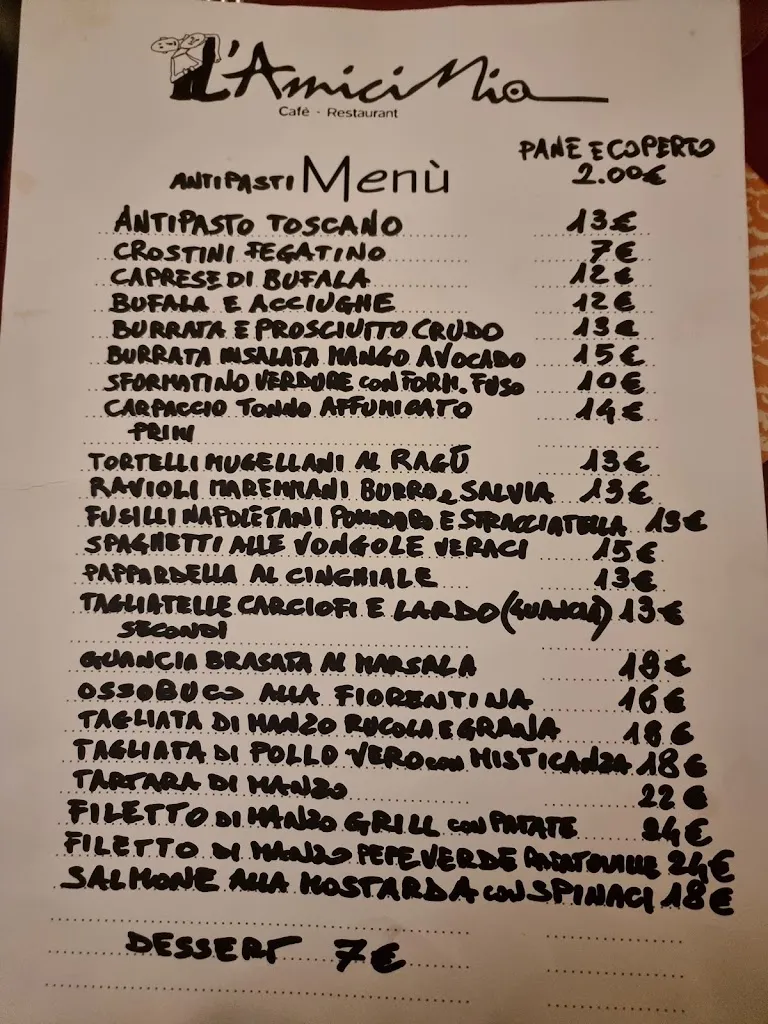 L'Amici Mia
Café - Restaurant
PANE E COPERTO
2.00€
ANTIPASTI Menù
ANTIPASTO TOSCANO 13€
CROSTINI FEGATINO 7€
CAPRESE DI BUFALA 12€
BUFALA E ACCIUGHE 12€
BURRATA E PROSCIUTTO CRUDO 13€
BURRATA INSALATA MANGO AVOCADO 15€
SFORMATINO VERDURE con FORM. FUSO 10€
CARPACCIO TONNO AFFUMICATO 14€
PRIMI
TORTELLI MUGELLANI AL RAGÙ 13€
RAVIOLI MAREMMANI BURRO e SALVIA 13€
FUSILLI NAPOLETANI POMODORO E STRACCIATELLA 13€
SPAGHETTI ALLE VONGOLE VERACI 15€
PAPPARDELLA AL CINGHIALE 13€
TAGLIATELLE CARCIOFI E LARDO (GUANCIA) 13€
SECONDI
GUANCIA BRASATA AL MARSALA 18€
OSSOBUCO ALLA FIORENTINA 16€
TAGLIATA DI MANZO RUCOLA E GRANA 18€
TAGLIATA DI POLLO VERO con MISTICANZA 18€
TARTARA DI MANZO 22€
FILETTO DI MANZO GRILL con PATATE 24€
FILETTO DI MANZO PEPE VERDE RATATOUILLE 24€
SALMONE ALLA MOSTARDA con SPINACI 18€
DESSERT 7€